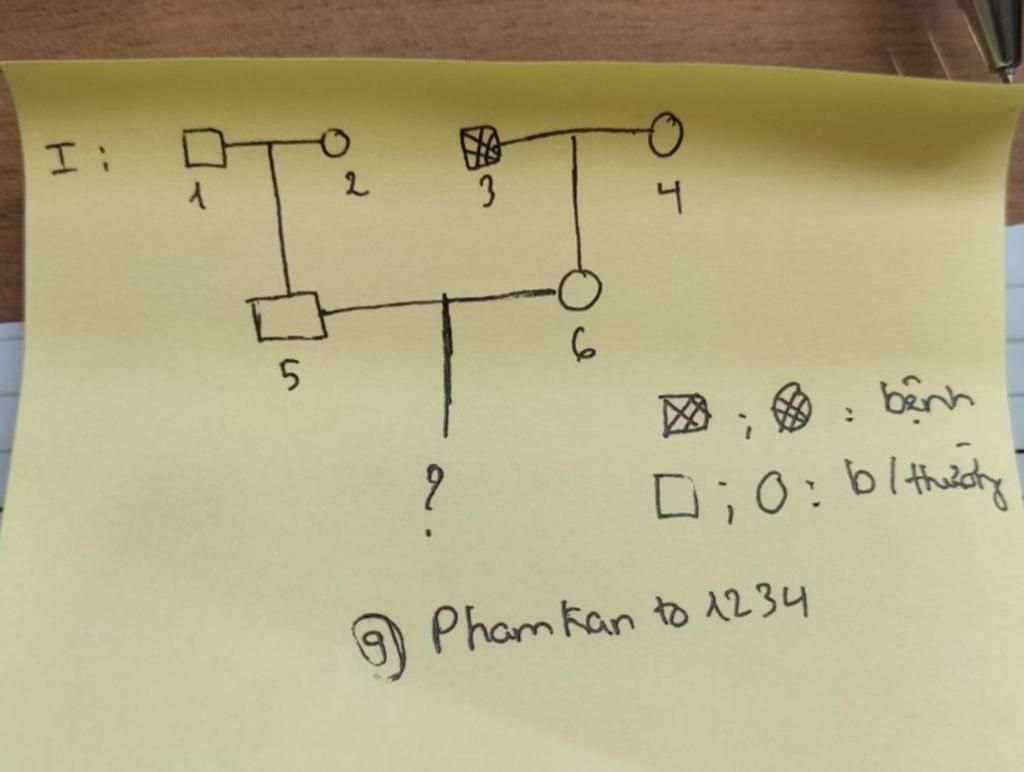 I:
1 2 3 4
5 6
?
; : bệnh
; : b/thường
@ Phamkan to 1234